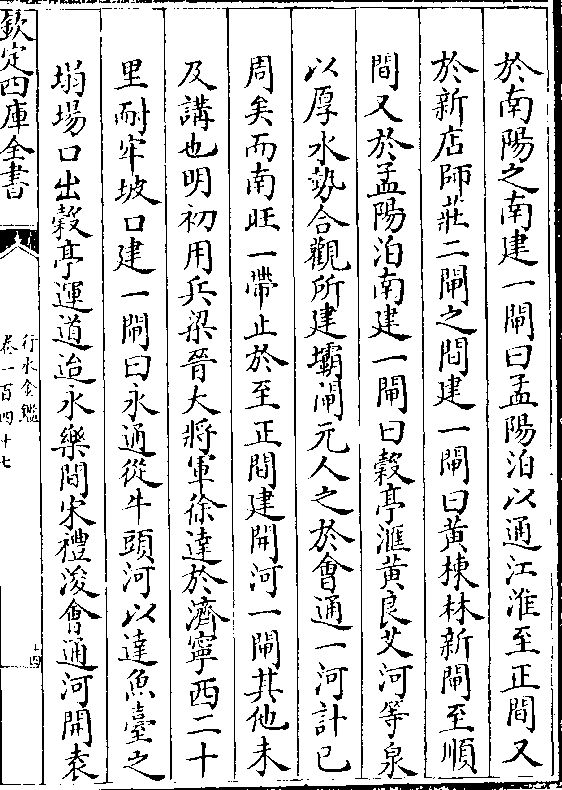 於南陽之南建一閘曰孟陽泊以通江淮至正間又
於新店師莊二閘之間建一閘曰黃棟林新閘至順
間又於孟陽泊南建一閘曰穀亭滙黃良艾河等泉
以厚水勢合觀所建壩閘元人之於會通一河計已
周矣而南旺一帶止於至正間建開河一閘其他未
及講也明初用兵梁晉大將軍徐達於濟寧西二十
里耐牢坡口建一閘曰永通從牛頭河以達魚臺之
塌場口出穀亭運道迨永樂間宋禮浚會通河開袁
欽定四庫全書
行水金鑑
卷一百四十七
十四